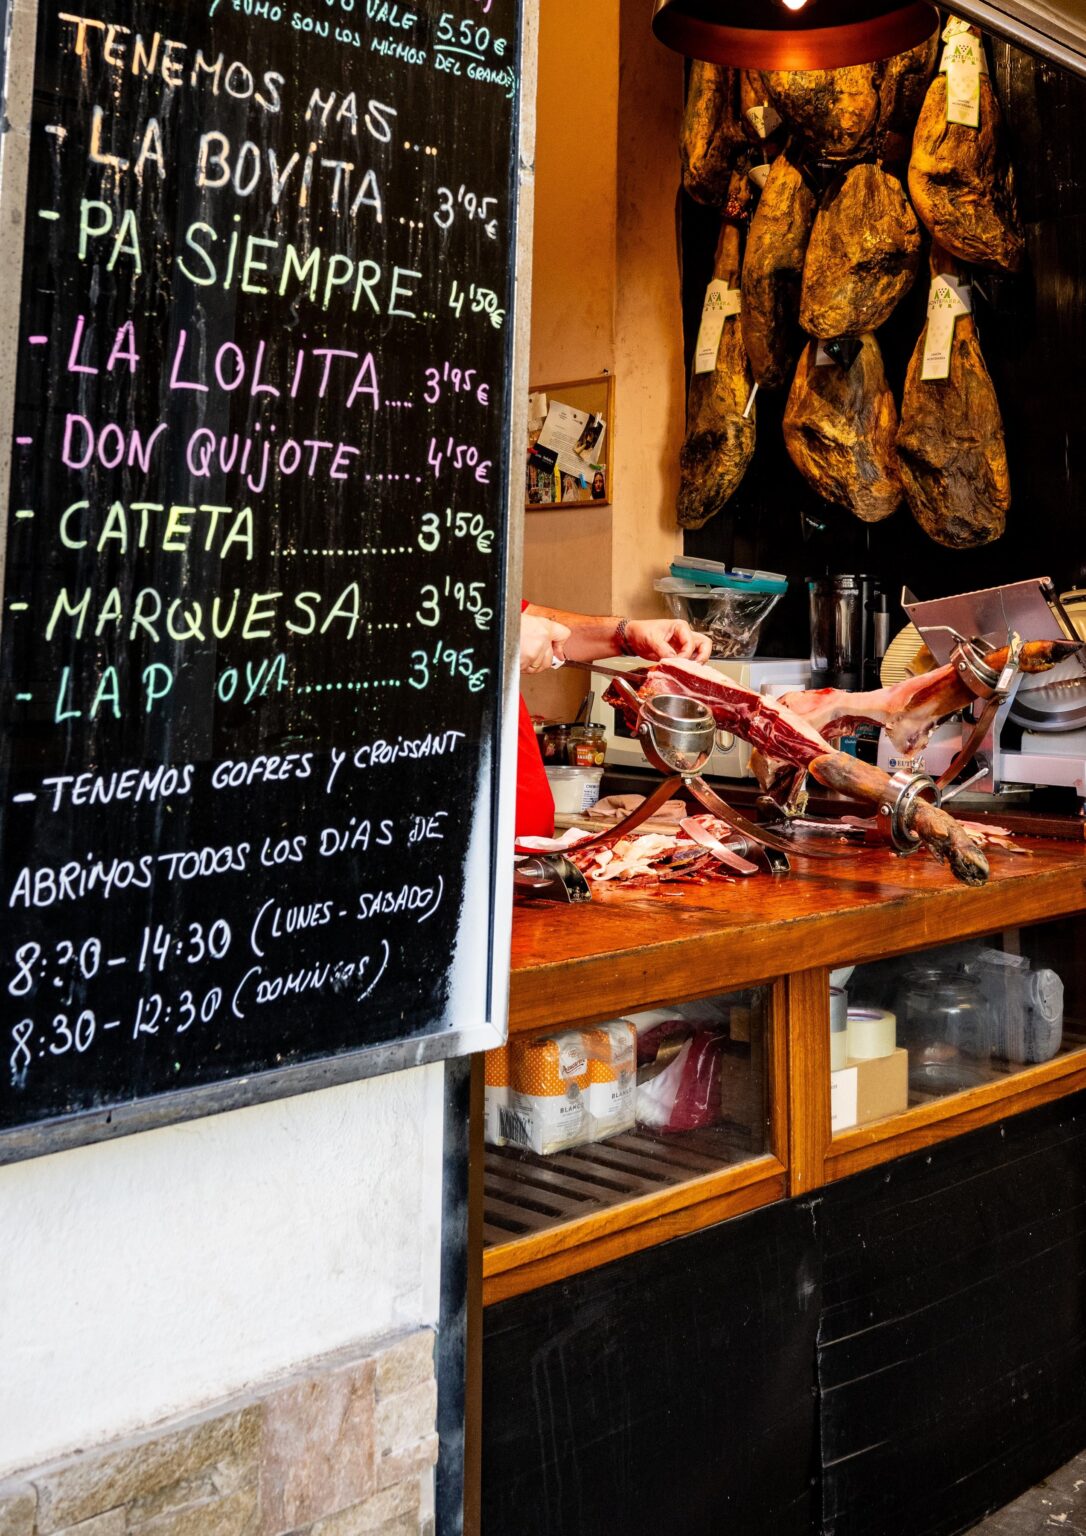 VALE 5.50€
SON LOS MISMOS DEL GRANDE)
TENEMOS MAS ...
- LA BOVITA ... 3'95€
- PA SIEMPRE .. 4'50€
- LA LOLITA .... 3'95€
- DON QUIJOTE ...... 4'50€
- CATETA ............. 3'50€
- MARQUESA .... 3'95€
- LA P OYA ........... 3'95€
- TENEMOS GOFRES Y CROISSANT
ABRIMOS TODOS LOS DIAS DE
8:30 - 14:30 (LUNES - SABADO)
8:30 - 12:30 (DOMINGOS)
BLANCO